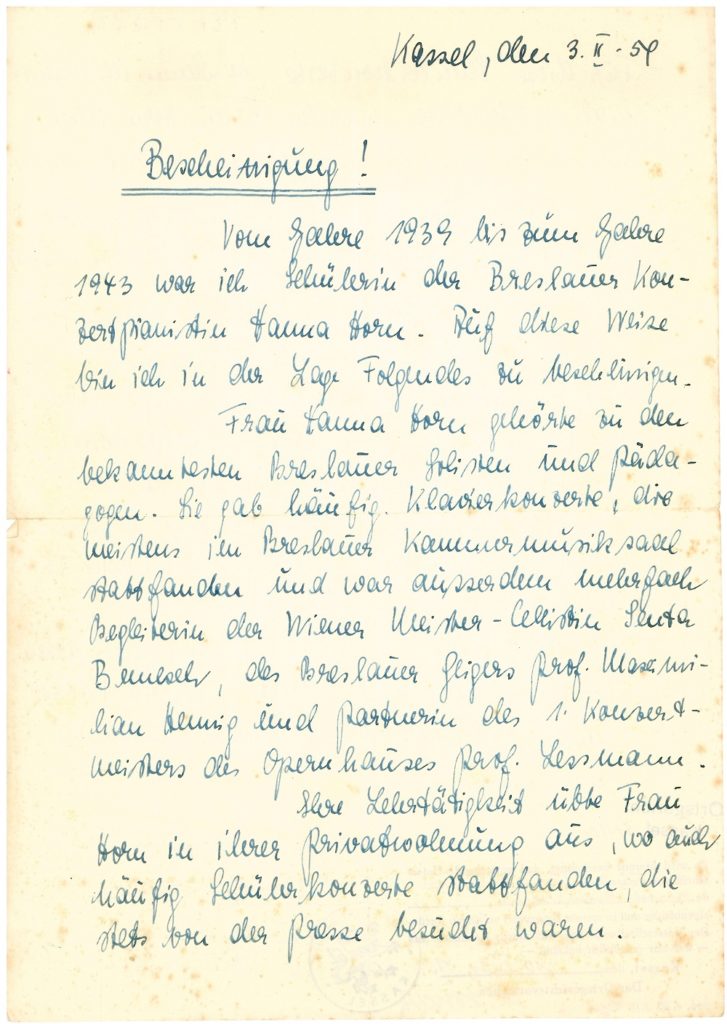 Kassel, den 3. II. 59
Bescheinigung!
Vom Jahre 1939 bis zum Jahre
1943 war ich Schülerin der Breslauer Kon-
zertpianistin Hanna Horn. Auf diese Weise
bin ich in der Lage Folgendes zu bescheinigen.
Frau Hanna Horn gehörte zu den
bekanntesten Breslauer Solisten und Päda-
gogen. Sie gab häufig Klavierkonzerte, die
meistens im Breslauer Kammermusiksaal
stattfanden und war ausserdem mehrfach
Begleiterin der Wiener Meister-Cellistin Senta
Benesch, des Breslauer Geigers Prof. Maximi-
lian Hennig und Partnerin des 1. Konzert-
meisters des Opernhauses Prof. Lessmann.
Ihre Lehrtätigkeit übte Frau
Horn in ihrer Privatwohnung aus, wo auch
häufig Schülerkonzerte stattfanden, die
stets von der Presse besucht waren.